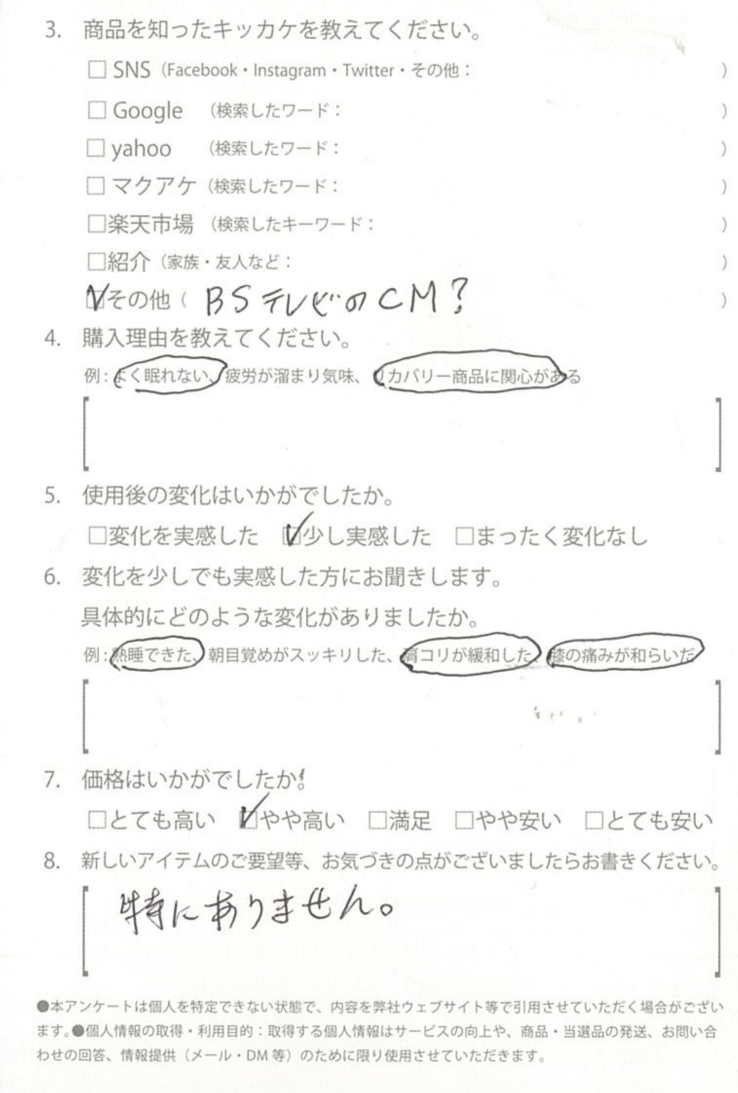 3. 商品を知ったキッカケを教えてください。
□ SNS（Facebook・Instagram・Twitter・その他： ）
□ Google （検索したワード： ）
□ yahoo （検索したワード： ）
□ マクアケ（検索したワード： ）
□楽天市場（検索したキーワード： ）
□紹介（家族・友人など： ）
☑その他（ BSテレビのCM? ）
4. 購入理由を教えてください。
例：よく眠れない、疲労が溜まり気味、リカバリー商品に関心がある
5. 使用後の変化はいかがでしたか。
□変化を実感した ☑少し実感した □まったく変化なし
6. 変化を少しでも実感した方にお聞きします。
具体的にどのような変化がありましたか。
例：熟睡できた、朝目覚めがスッキリした、肩コリが緩和した、膝の痛みが和らいだ
7. 価格はいかがでしたか。
□とても高い ☑やや高い □満足 □やや安い □とても安い
8. 新しいアイテムのご要望等、お気づきの点がございましたらお書きください。
特にありません。
●本アンケートは個人を特定できない状態で、内容を弊社ウェブサイト等で引用させていただく場合がござい
ます。●個人情報の取得・利用目的：取得する個人情報はサービスの向上や、商品・当選品の発送、お問い合
わせの回答、情報提供（メール・DM 等）のために限り使用させていただきます。